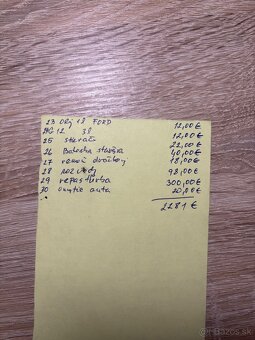 23 Olej 18 FORD 12,00€
12 38 12,00€
25 sterače 22,00€
26 Batéria staršia 40,00€
27 remeň drážkový 18,00€
28 rozvody 98,00€
29 repas turba 300,00€
30 umytie auta 20,00€
2281 €
bazos.sk